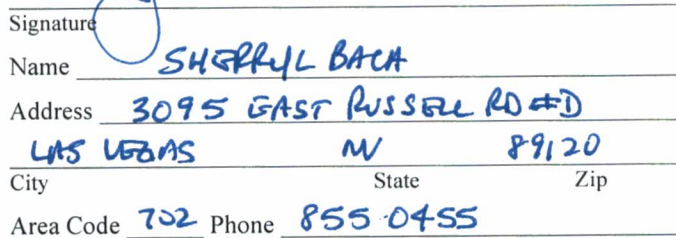 Signature
Name SHERRYL BACA
Address 3095 EAST RUSSELL RD #D
LAS VEGAS NV 89120
City State Zip
Area Code 702 Phone 855-0455